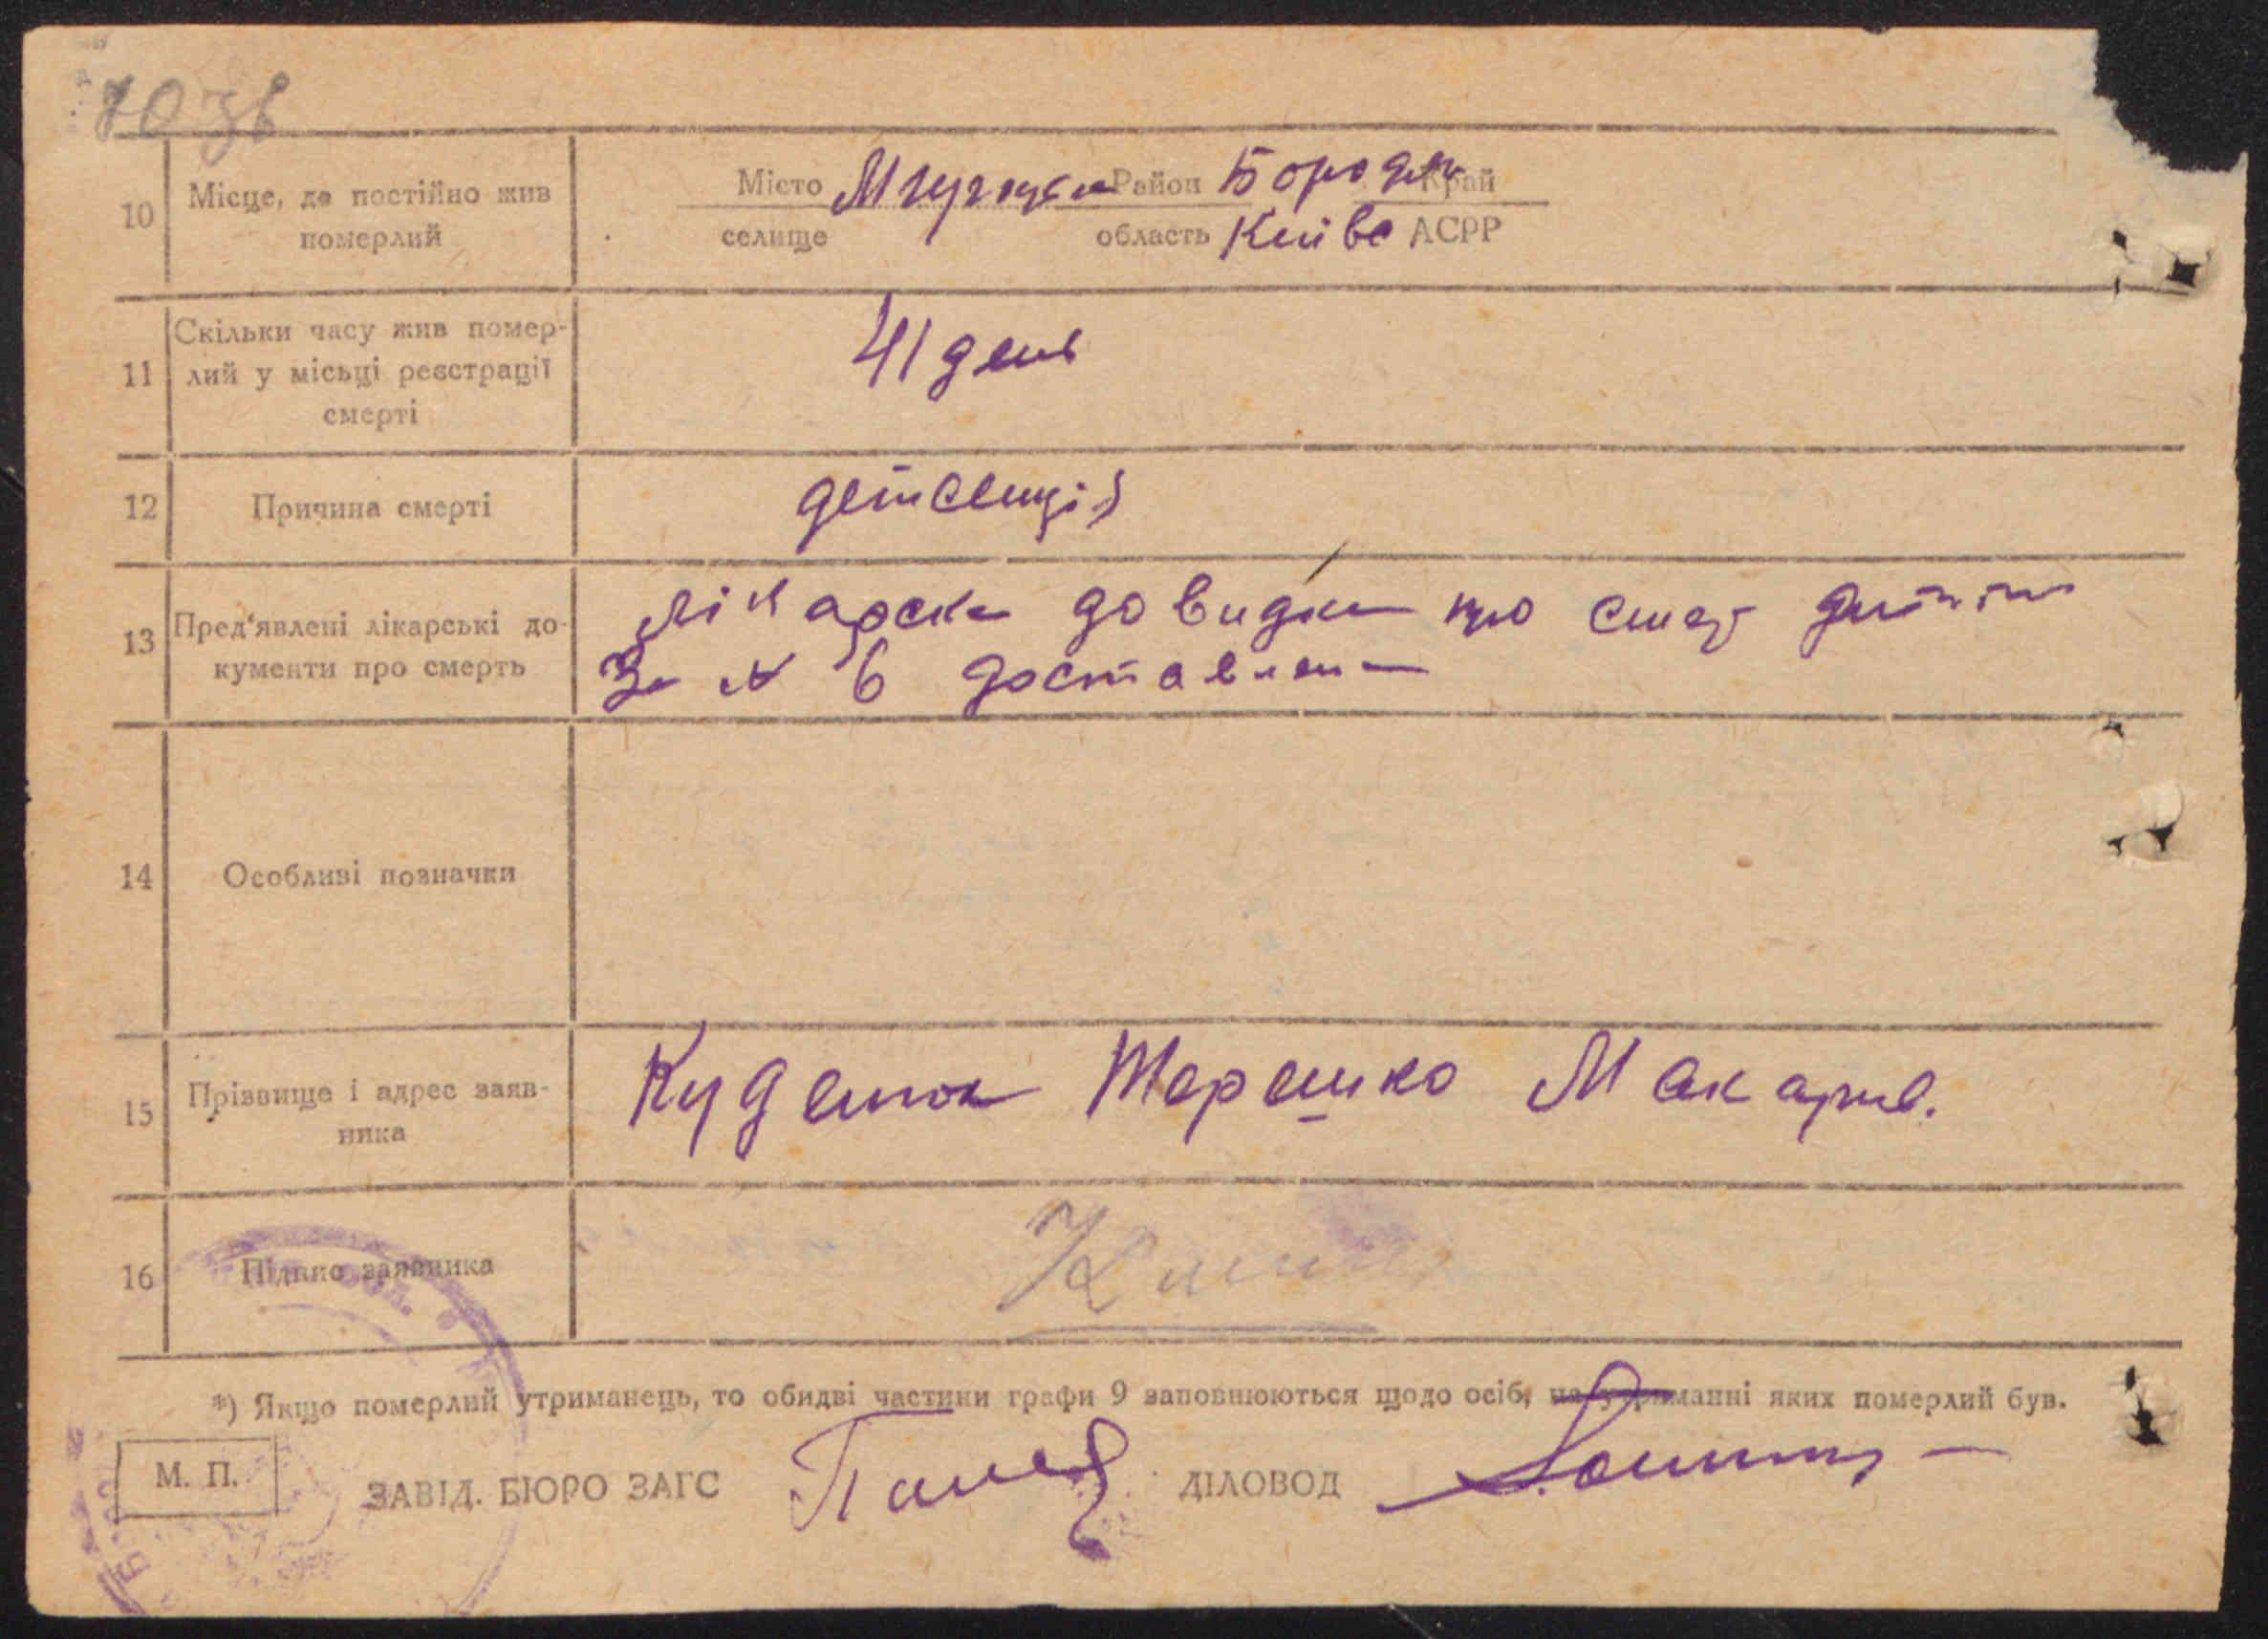 70 зв
10 Місце, де постійно жив померлий
Місто Район Бородян Край
селище область Київс АСРР
11 Скільки часу жив помер-
лий у місьці реєстрації
смерті
41 день
12 Причина смерті
13 Пред'явлені лікарські до-
кументи про смерть
Лікарска довидка про смер
За N 6 доставлена
14 Особливі позначки
15 Прізвище і адрес заяв-
ника
Макарів.
16 Підпис заявника
*) Якщо померлий утриманець, то обидві частини графи 9 заповнюються щодо осіб, на утриманні яких померлий був.
М. П. ЗАВІД. БЮРО ЗАГС ДІЛОВОД